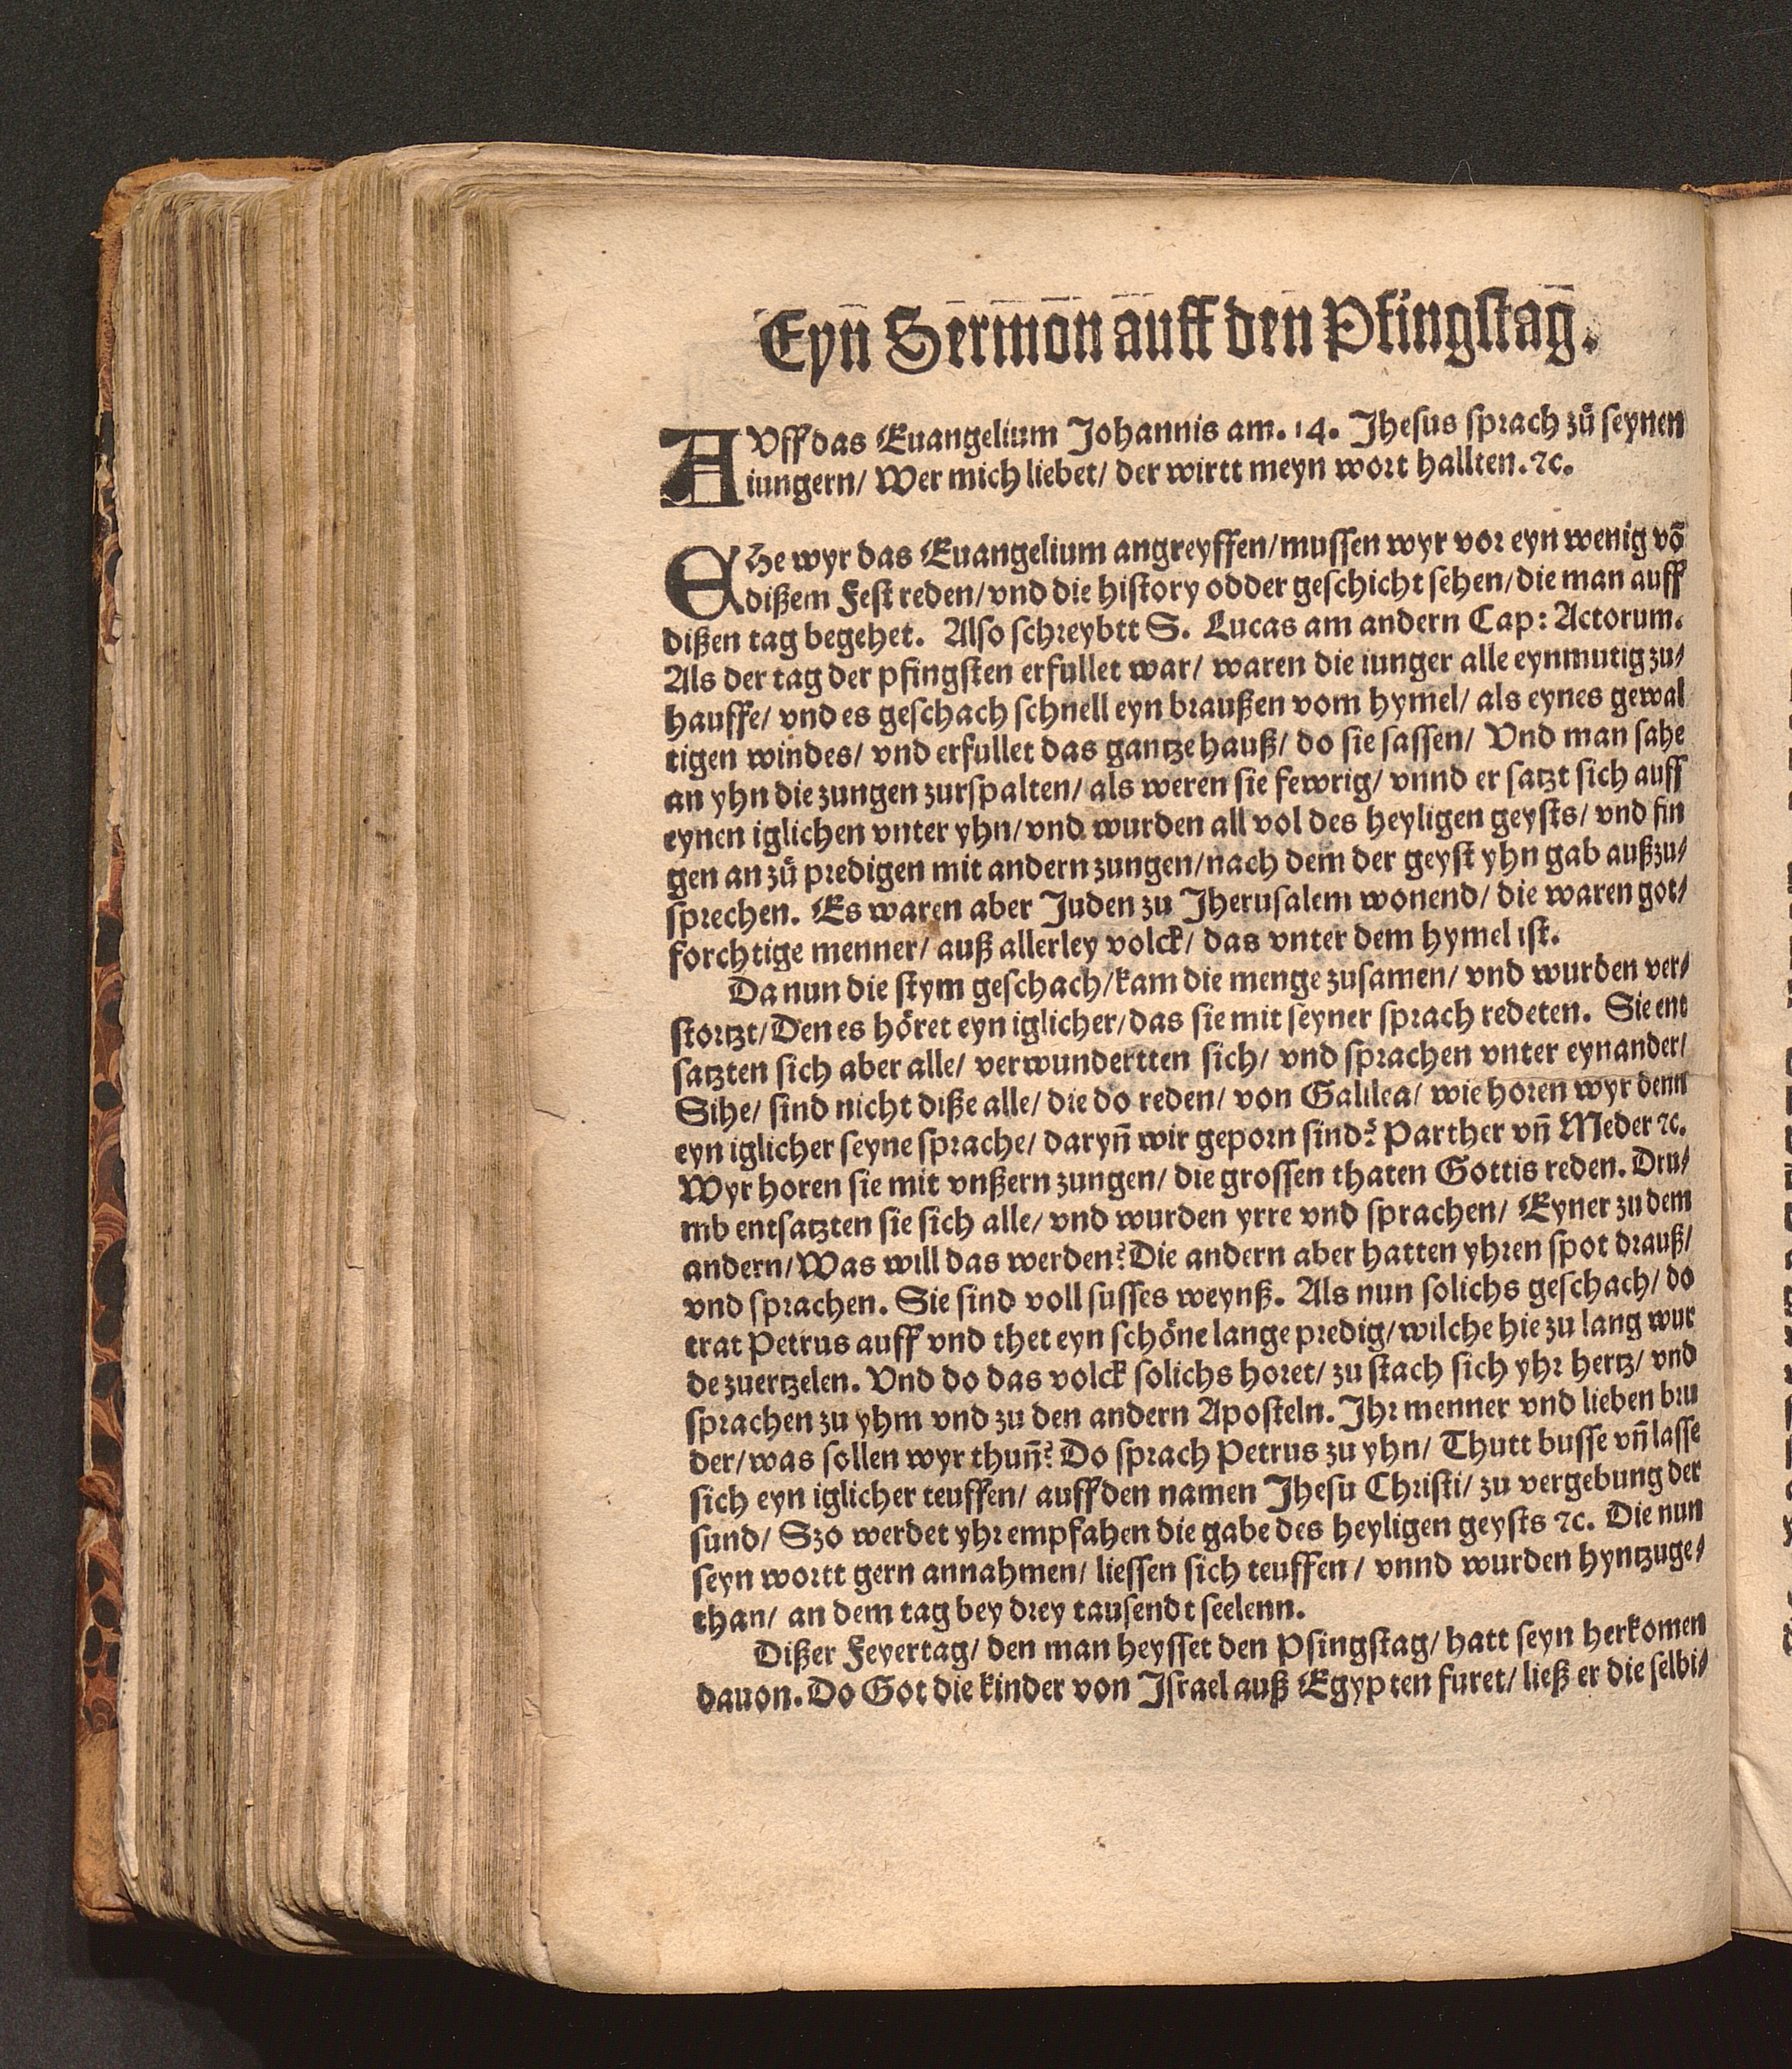 Eyn Sermon auff den Pfingstag.
AVff das Euangelium Johannis am. 14. Jhesus sprach zů seynen
iungern/ Wer mich liebet/ der wirtt meyn wort hallten. ⁊c.
EHe wyr das Euangelium angreyffen/ mussen wyr vor eyn wenig võ
dißem Fest reden/ vnd die history odder geschicht sehen/ die man auff
dißen tag begehet. Also schreybtt S. Lucas am andern Cap: Actorum.
Als der tag der pfingsten erfullet war/ waren die iunger alle eynmutig zu/
hauffe/ vnd es geschach schnell eyn braußen vom hymel/ als eynes gewal
tigen windes/ vnd erfullet das gantze hauß/ do sie sassen/ Vnd man sahe
an yhn die zungen zurspalten/ als weren sie fewrig/ vnnd er satzt sich auff
eynen iglichen vnter yhn/ vnd wurden all vol des heyligen geysts/ vnd fin
gen an zů predigen mit andern zungen/ nach dem der geyst yhn gab außzu/
sprechen. Es waren aber Juden zu Jherusalem wonend/ die waren got/
forchtige menner/ auß allerley volck/ das vnter dem hymel ist.
Da nun die stym geschach/ kam die menge zusamen/ vnd wurden ver/
stortzt/ Den es hőret eyn iglicher/ das sie mit seyner sprach redeten. Sie ent
satzten sich aber alle/ verwundertten sich/ vnd sprachen vnter eynander/
Sihe/ sind nicht diße alle/ die do reden/ von Galilea/ wie horen wyr denn
eyn iglicher seyne sprache/ daryñ wir geporn sind? Parther vñ Meder ⁊c.
Wyr horen sie mit vnßern zungen/ die grossen thaten Gottis reden. Dru/
mb entsatzten sie sich alle/ vnd wurden yrre vnd sprachen/ Eyner zu dem
andern/ Was will das werden? Die andern aber hatten yhren spot drauß/
vnd sprachen. Sie sind voll susses weynß. Als nun solichs geschach/ do
trat Petrus auff vnd thet eyn schőne lange predig/ wilche hie zu lang wur
de zuertzelen. Vnd do das volck solichs horet/ zu stach sich yhr hertz/ vnd
sprachen zu yhm vnd zu den andern Aposteln. Jhr menner vnd lieben bru
der/ was sollen wyr thuñ? Do sprach Petrus zu yhn/ Thutt busse vñ lasse
sich eyn iglicher teuffen/ auff den namen Jhesu Christi/ zu vergebung der
sund/ Szo werdet yhr empfahen die gabe des heyligen geysts ⁊c. Die nun
seyn wortt gern annahmen/ liessen sich teuffen/ vnnd wurden hyntzuge/
than/ an dem tag bey drey tausendt seelenn.
Dißer Feyertag/ den man heysset den Pfingstag/ hatt seyn herkomen
dauon. Do Got die kinder von Israel auß Egypten furet/ ließ er die selbi/